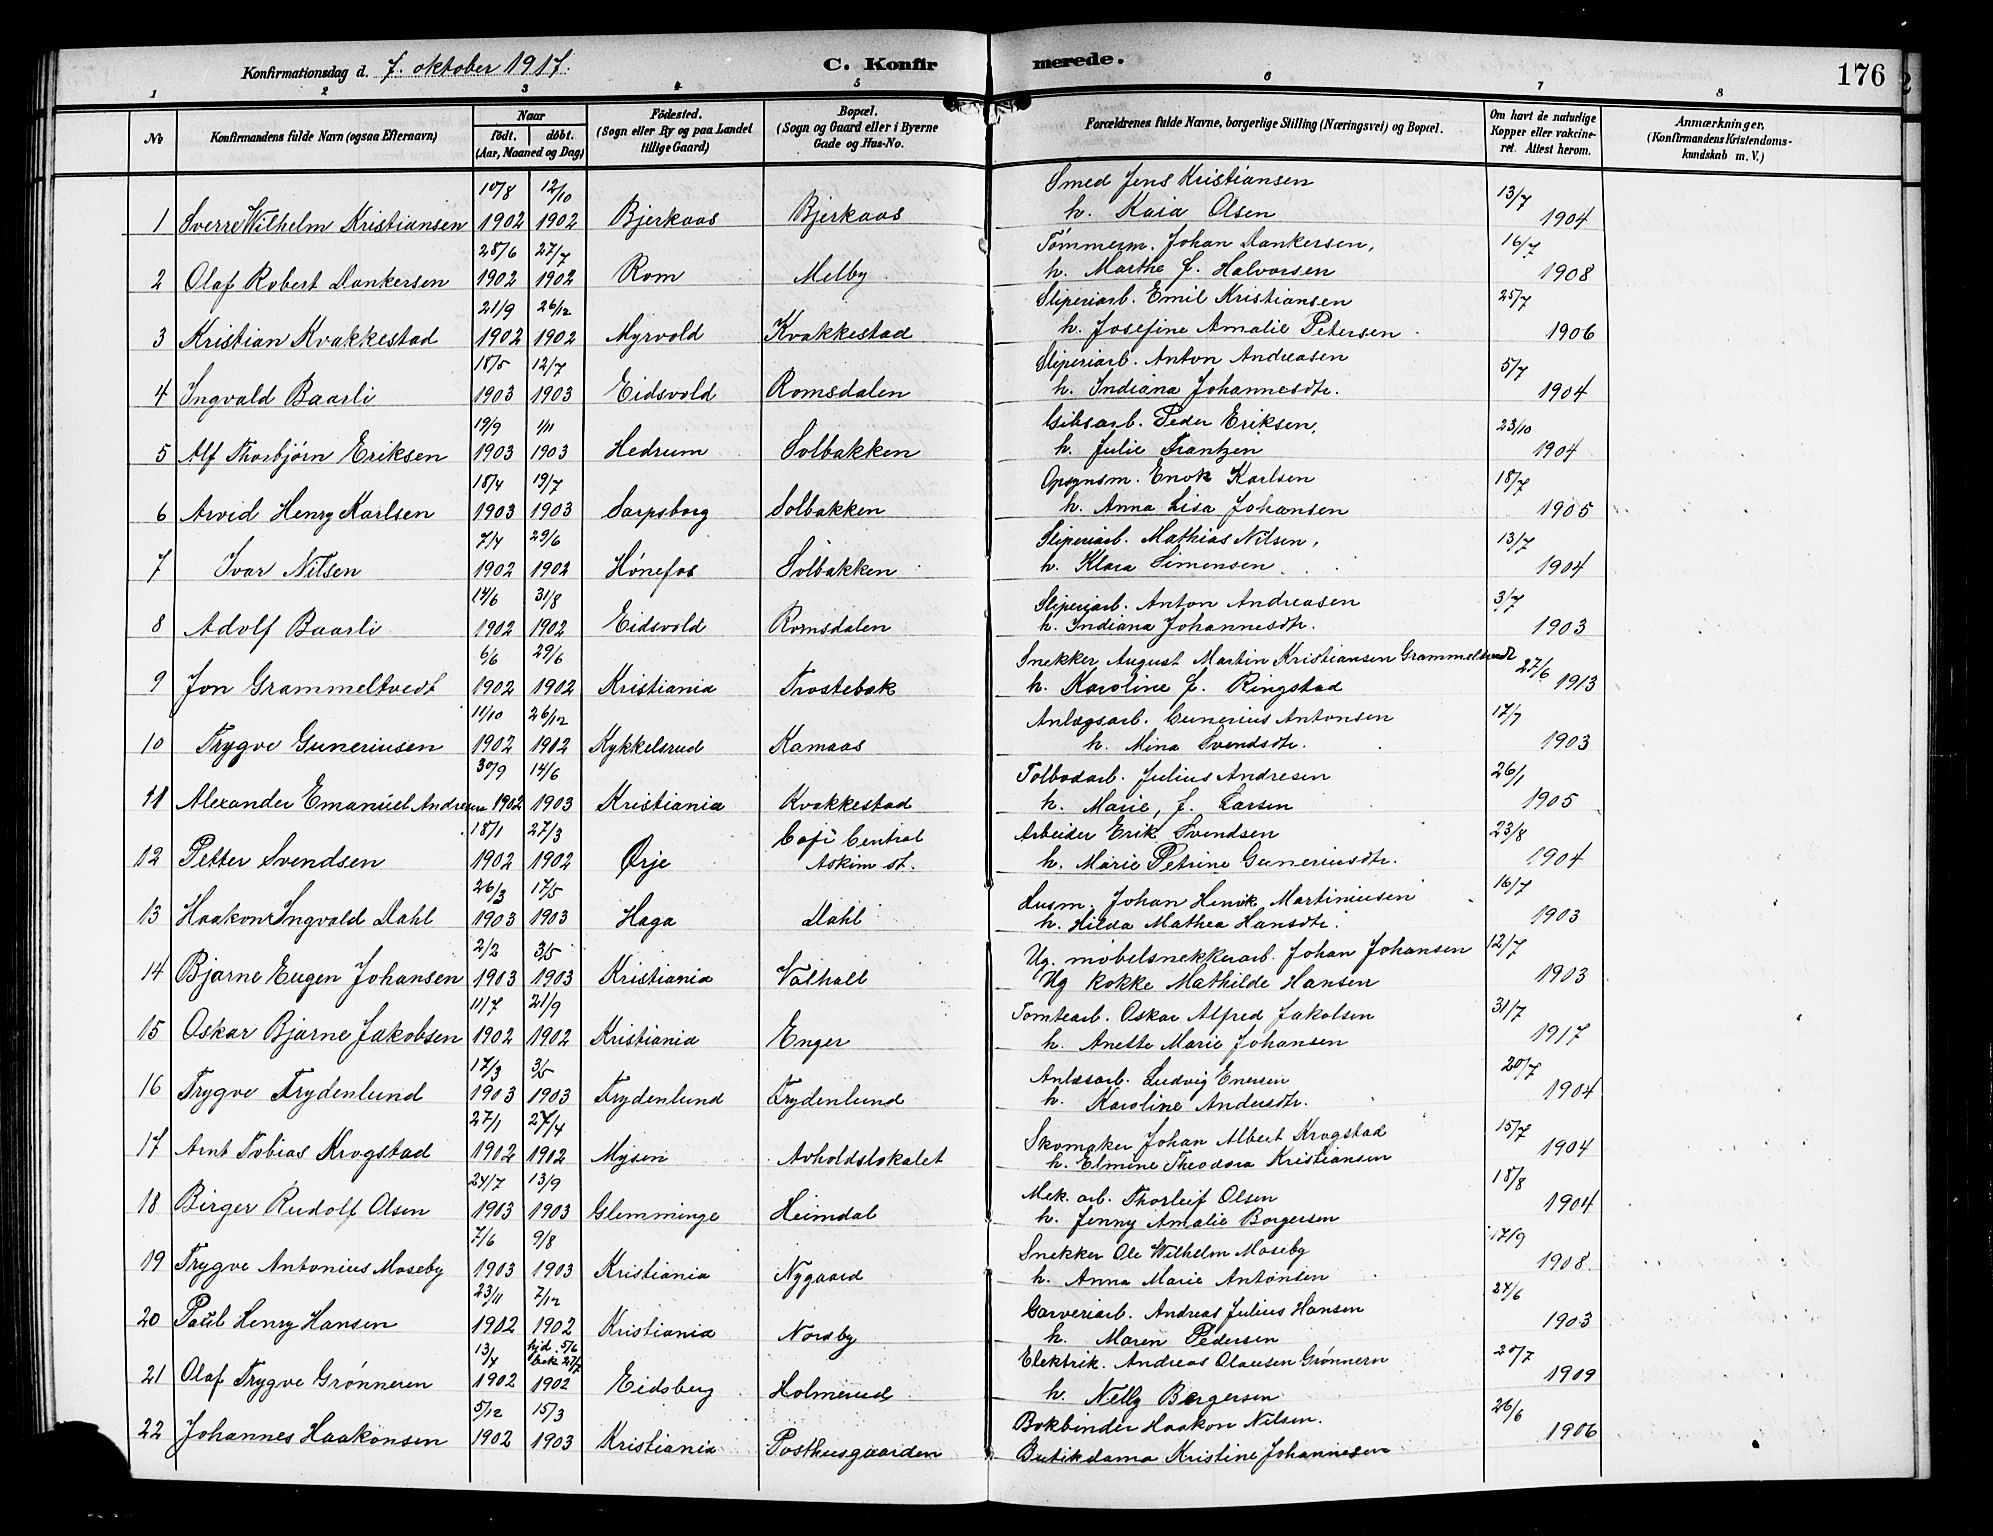 Konfirmationsdag d. 7. oktober 1917.
C. Konfirmerede.
176
1 2 3 4 5 6 7 8
No
Konfirmandens fulde Navn (ogsaa Efternavn)
Naar
födt. döbt.
(Aar, Maaned og Dag)
Födested.
(Sogn eller By og paa Landet
tillige Gaard)
Bopæl.
(Sogn og Gaard eller i Byerne
Gade og Hus-No.
Forældrenes fulde Navne, borgerlige Stilling (Næringsvei) og Bopæl.
Om havt de naturlige
Kopper eller vakcine-
ret. Attest herom.
Anmærkninger,
(Konfirmandens Kristendoms-
kundskab m. V.)
10/8 12/10 Smed Jens Kristiansen 13/7
1 Sverre Wilhelm Kristiansen 1902 1902 Bjerkaas Bjerkaas h. Kaia Olsen 1904
28/6 27/7 Tømmerm. Johan Dankersen, 16/7
2 Olaf Robert Dankersen 1902 1902 Rom Melby h. Marthe f. Halvorsen 1908
21/9 26/12 Sliperiarb. Emil Kristiansen 25/7
3 Kristian Kvakkestad 1902 1902 Myrvold Kvakkestad h. Josefine Amalie Petersen 1906
18/5 12/7 Sliperiarb. Anton Andreasen 5/7
4 Ingvald Baarli 1903 1903 Eidsvold Romsdalen h. Indiana Johannesdtr. 1904
19/9 1/11 Gibsarb. Peder Eriksen, 23/10
5 Alf Thorbjörn Eriksen 1903 1903 Hedrum Solbakken h. Julie Frantzen 1904
18/4 19/7 Opsynsm. Enok Karlsen 18/7
6 Arvid Henry Karlsen 1903 1903 Sarpsborg Solbakken h. Anna Lisa Johansen 1905
7/4 29/6 Sliperiarb. Mathias Nilsen, 13/7
7 Ivar Nilsen 1902 1902 Hönefos Solbakken h. Klara Simensen 1904
14/6 31/8 Sliperiarb. Anton Andreasen 3/7
8 Adolf Baarli 1902 1902 Eidsvold Romsdalen h. Indiana Johannesdtr. 1903
6/6 29/6 Snekker August Martin Kristiansen Grammeltvedt 27/6
9 Jon Grammeltvedt 1902 1902 Kristiania Trostebak h. Karoline f. Ringstad 1913
11/10 26/12 Anlægsarb. Gunerius Antonsen 17/7
10 Trygve Guneriusen 1902 1902 Kykkelsrud Kamaas h. Mina Svendsdtr. 1903
30/9 14/6 Tolbodarb. Julius Andresen 26/1
11 Alexander Emanuel Andresen 1902 1903 Kristiania Kvakkestad h. Marie, f. Larsen 1905
18/1 27/3 Cafè Central Arbeider Erik Svendsen 23/8
12 Petter Svendsen 1902 1902 Ørje Askim st. h. Marie Petrine Guneriusdtr. 1904
26/3 17/5 Husm. Johan Henrik Martiniusen 16/7
13 Haakon Ingvald Dahl 1903 1903 Haga Dahl h. Hilda Mathea Hansdtr. 1903
2/2 3/5 Ug. möbelsnekkerarb. Johan Johansen 12/7
14 Bjarne Eugen Johansen 1903 1903 Kristiania Valhall Ug kokke Mathilde Hansen 1903
11/7 21/9 Tomtearb. Oskar Alfred Jakobsen 31/7
15 Oskar Bjarne Jakobsen 1902 1902 Kristiania Enger h. Anette Marie Johansen 1917
17/3 3/5 Anlæsarb. Ludvig Enersen 20/7
16 Trygve Frydenlund 1903 1903 Frydenlund Frydenlund h. Karoline Andersdtr. 1904
27/1 27/4 Skomaker Johan Albert Krogstad 15/7
17 Arnt Tobias Krogstad 1902 1902 Mysen Avholdslokalet h. Elmine Theodora Kristiansen 1904
24/7 13/9 Mek. arb. Thorleif Olsen 18/8
18 Birger Rudolf Olsen 1903 1903 Glemminge Heimdal h. Jenny Amalie Borgersen 1904
7/6 9/8 Snekker Ole Wilhelm Moseby 17/9
19 Trygve Antonius Moseby 1903 1903 Kristiania Nygaard h. Anna Marie Antonsen 1908
23/11 7/12 Garveriarb. Andreas Julius Hansen 24/6
20 Paul Henry Hansen 1902 1902 Kristiania Nordby h. Maren Pedersen 1903
13/4 hjd. 5/6 bek 27/7 Elektrik. Andreas Olausen Grønnern 20/7
21 Olaf Trygve Grønneren 1902 1902 Eidsberg Holmerud h. Nelly Borgersen 1909
5/12 15/3 Bokbinder Haakon Nilsen. 26/6
22 Johannes Haakonsen 1902 1903 Kristiania Posthusgaarden Butikdama Kristine Johannesen 1906